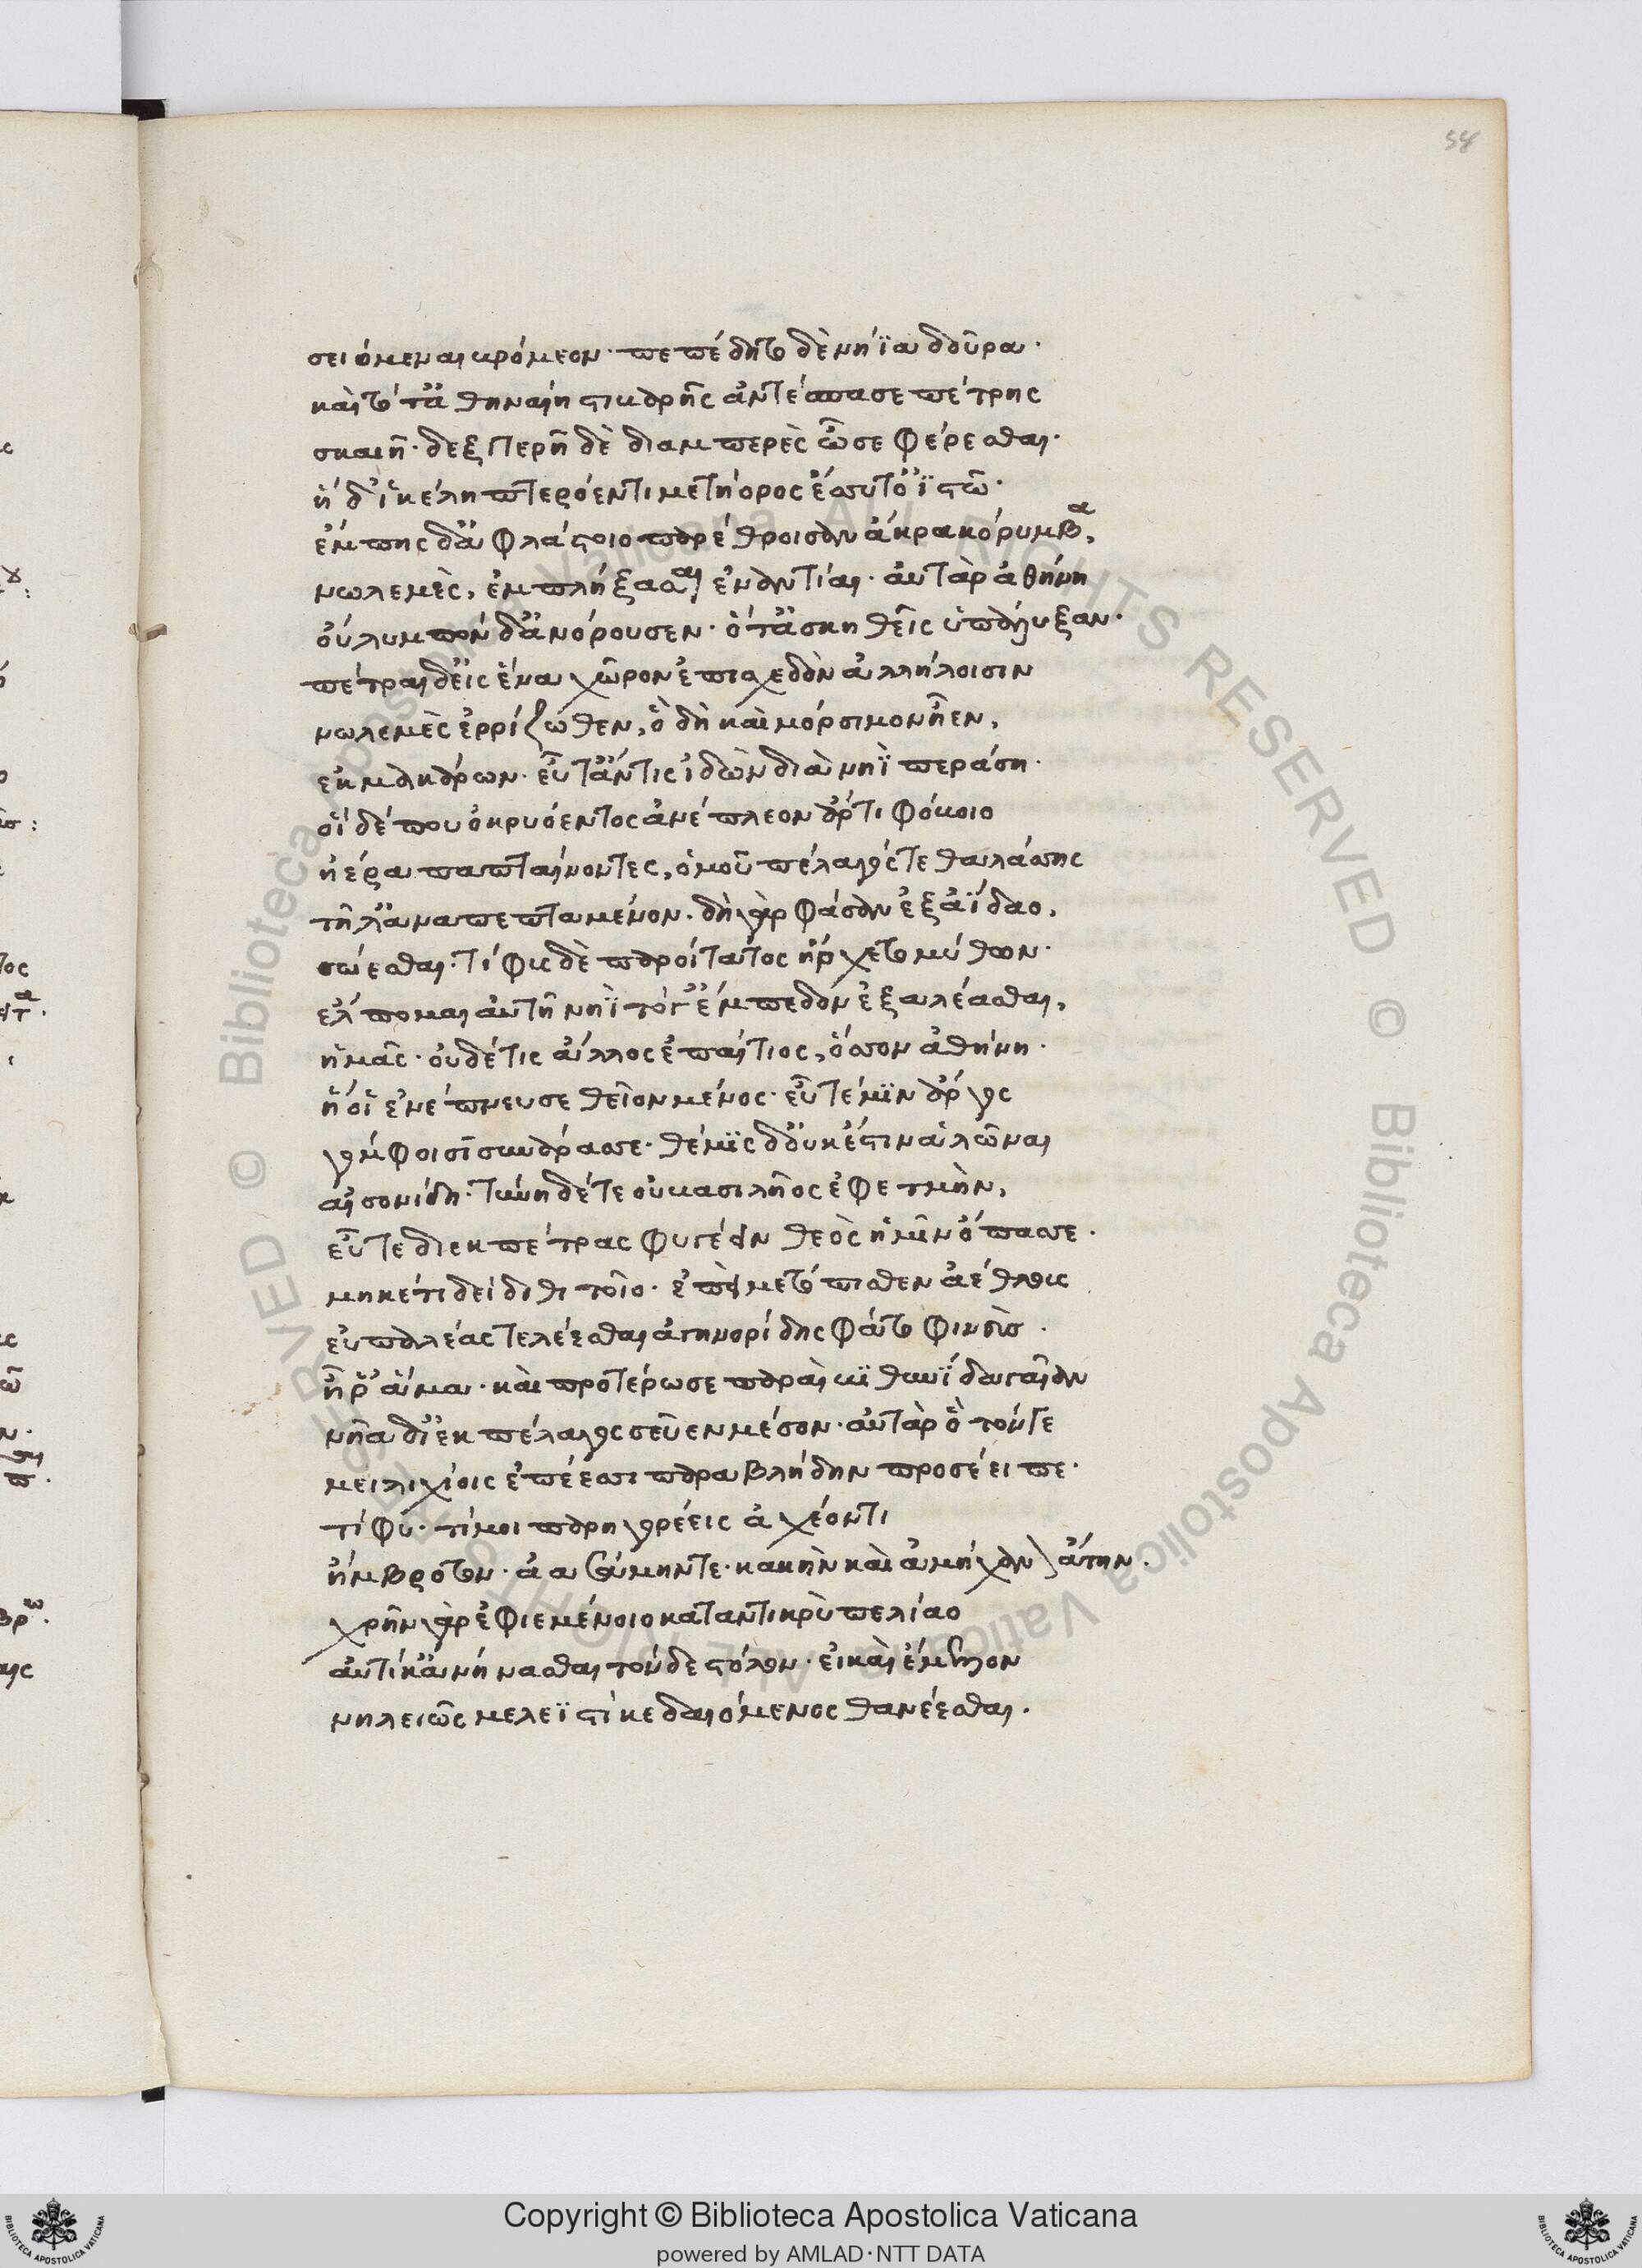 σειόμεναι κρόμεον· πεπέδητο δὲ νήϊα δοῦρα·
καὶ τότ' ἀθηναίη στιβαρῆς ἀντέσπασε πέτρης
σκαιῇ· δεξιτερῇ δὲ διαμπερὲς ὦσε φέρεσθαι·
ἡ δ' ἰκέλη πτερόεντι μετήορος ἔσσυτ' ὀϊστῶ·
ἔμπης δ' ἀφλάστοιο παρέθροισαν ἄκρα κόρυμβα,
νωλεμὲς, ἐμπλήξασαι ἐναντίαι· αὐτὰρ ἀθήνη
οὔλυμπον δ' ἀνόρουσεν· ὅτ' ἀσκηθεῖς ὑπάλυξαν·
πέτραι δ' εἰς ἕνα χῶρον ἐπισχεδὸν ἀλλήλοισιν
νωλεμὲς ἐρρίζωθεν, ὃ δὴ καὶ μόρσιμον ἦεν,
ἐκ μακάρων· εὖτ' ἄν τις ἰδὼν διὰ νηῒ περάση·
οἱ δέ που ὀκρυόεντος ἀνέπλεον ἄρτι φόβοιο
ἠέρα παπταίνοντες, ὁμοῦ πέλαγός τε θαλάσσης
τῆλ' ἀναπεπταμένον· δὴ γὰρ φάσαν ἐξ ἀΐδαο,
σώεσθαι· τίφυς δὲ παροίτατος ἤρχετο μύθων·
ἔλπομαι αὐτῆ νηῒ τόγ' ἔμπεδον ἐξαλέασθαι,
ἡμᾶς· οὐδέ τις ἄλλος ἐπαίτιος, ὅσσον ἀθήνη·
ἥ οἱ ἐνέπνευσε θεῖον μένος· εὖτέ μιν ἄργος
γόμφοισι συνάρασσε· θέμις δ' οὐκ ἔστιν ἁλῶναι
αἰσονίδη· τύνη δέ τεοῦ βασιλῆος ἐφετμὴν,
εὖτε διεκ πέτρας φυγέειν θεὸς ἡμῖν ὄπασσε·
μηκέτι δείδιθι τοῖο· ἐπεὶ μετόπισθεν ἀέθλους
εὐπαλέας τελέεσθαι ἀγηνορίδης φάτο φινεὺς·
ἦ ῥ' ἅμα· καὶ προτέρωσε παραὶ βιθυνΐδα γαῖαν
νῆα δι' ἐκ πέλαγος σεῦεν μέσον· αὐτὰρ ὃ τόνγε
μειλιχίοις ἐπέεσσι παραβλήδην προσέειπε·
τίφυ· τί μοι παρηγορέεις ἀχέοντι
ἤμβροτον· ἀασάμην τε· κακὴν καὶ ἀμήχανον ἄτην·
χρῆν γὰρ ἐφιεμένοιο καταντικρὺ πελίαο
αὐτίκ' ἀνήνασθαι τόνδε στόλον· εἰ καὶ ἔμελλον
νηλειῶς μελεϊστί κεδαιόμενος θανέεσθαι.
58
Copyright © Biblioteca Apostolica Vaticana
powered by AMLAD·NTT DATA